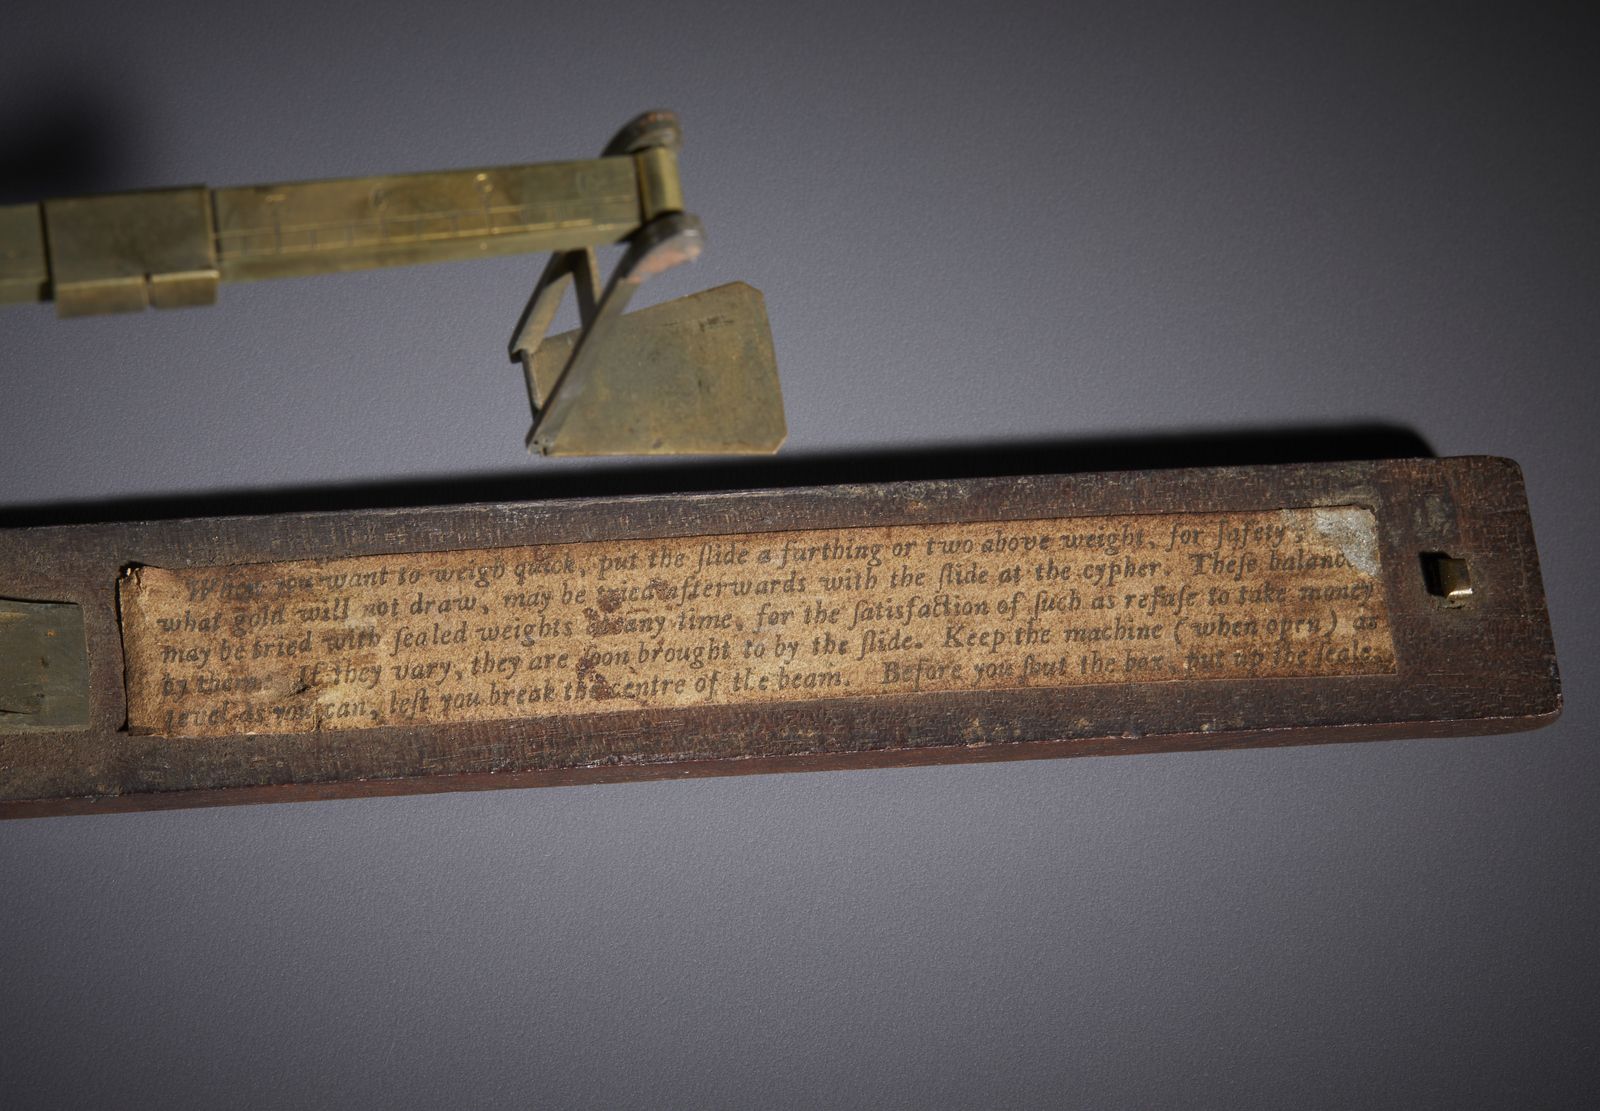 When you want to weigh quick, put the ſlide a farthing or two above weight, for ſafety;
what gold will not draw, may be tried afterwards with the ſlide at the cypher. Theſe
may be tried with ſealed weights at any time, for the ſatisfaction of ſuch as refuſe to take money
by them. If they vary, they are ſoon brought to by the ſlide. Keep the machine (when open) as
level as you can, leſt you break the centre of the beam. Before you ſhut the box, put up the ſcale.